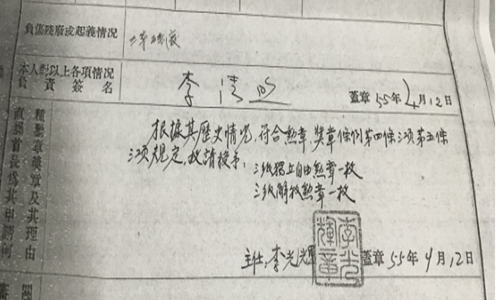 負傷殘廢或起義情况
本人對以上各項情况負責簽名 李清 蓋章 55年4月12日
種勳章獎章及其理由
直屬首長為其申請何
根據其歷史情况,符合勳章、獎章條例第四條三項第五條
三項規定,故請授予:
三级獨立自由勳章一枚
三级解放勳章一枚
主任:李光輝 蓋章 55年4月12日
李光輝章